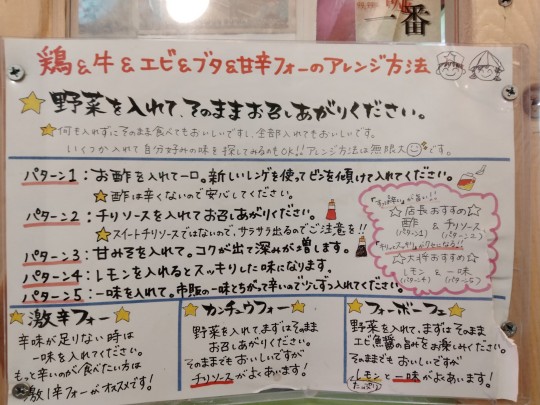 一番
鶏&牛&エビ&ブタ&甘辛フォーのアレンジ方法
野菜を入れて、そのままお召しあがりください。
何も入れずにそのまま食べてもおいしいですし、全部入れてもおいしいです。
いくつか入れて自分好みの味を探してみるのもOK!!アレンジ方法は無限大です。
パターン1:お酢を入れて一口。新しいレンゲを使ってビンを傾けて入れてください。
酢は辛くないので安心してください。
パターン2:チリソースを入れてお召しあがりください。
スイートチリソースではないので、サラサラ出るのでご注意を!!
パターン3:甘みそを入れて。コクが出て深みが増します。
パターン4:レモンを入れるとスッキリした味になります。
パターン5:一味を入れて。市販の一味とちがって辛いので少しずつ入れてください。
店長おすすめ
酢 & チリソース
(パターン1) (パターン2)
大将おすすめ
レモン & 一味
(パターン4) (パターン5)
激辛フォー
辛味が足りない時は
一味を入れてください。
もっと辛いのが食べたい方は
激辛フォーがオススメです!
カンチュウフォー
野菜を入れて、まずはそのまま
お召しあがりください。
そのままでもおいしいですが
チリソースがよくあいます!
フォーボーフェ
野菜を入れて、まずはそのまま
エビ魚醤の旨みをお楽しみください。
そのままでもおいしいですが
レモンと一味がよくあいます!
(たっぷり)